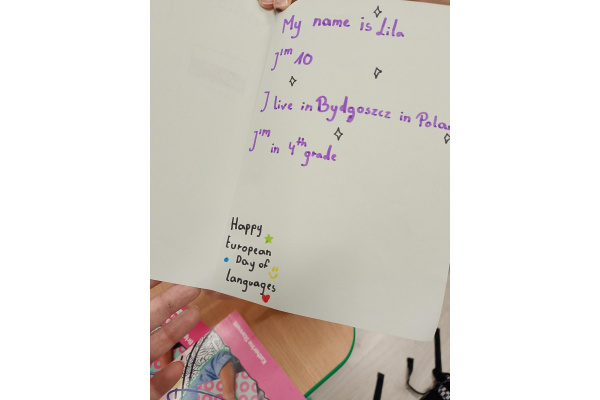 My name is Lila
I'm 10
I live in Bydgoszcz in Pola
I'm in 4th grade
Happy
European
Day of
languages